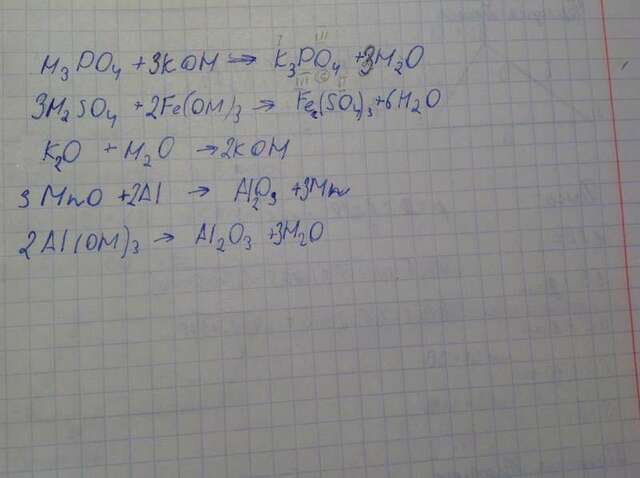 H₃PO₄ + 3KOH → K₃PO₄ + 3H₂O
3H₂SO₄ + 2Fe(OH)₃ → Fe₂(SO₄)₃ + 6H₂O
K₂O + H₂O → 2KOH
3 MnO + 2Al → Al₂O₃ + 3Mn
2Al(OH)₃ → Al₂O₃ + 3H₂O